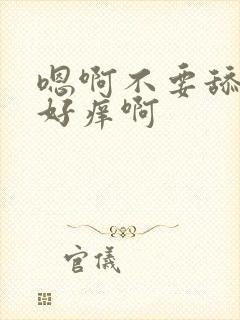 嗯啊不要舔
好痒啊
官仪